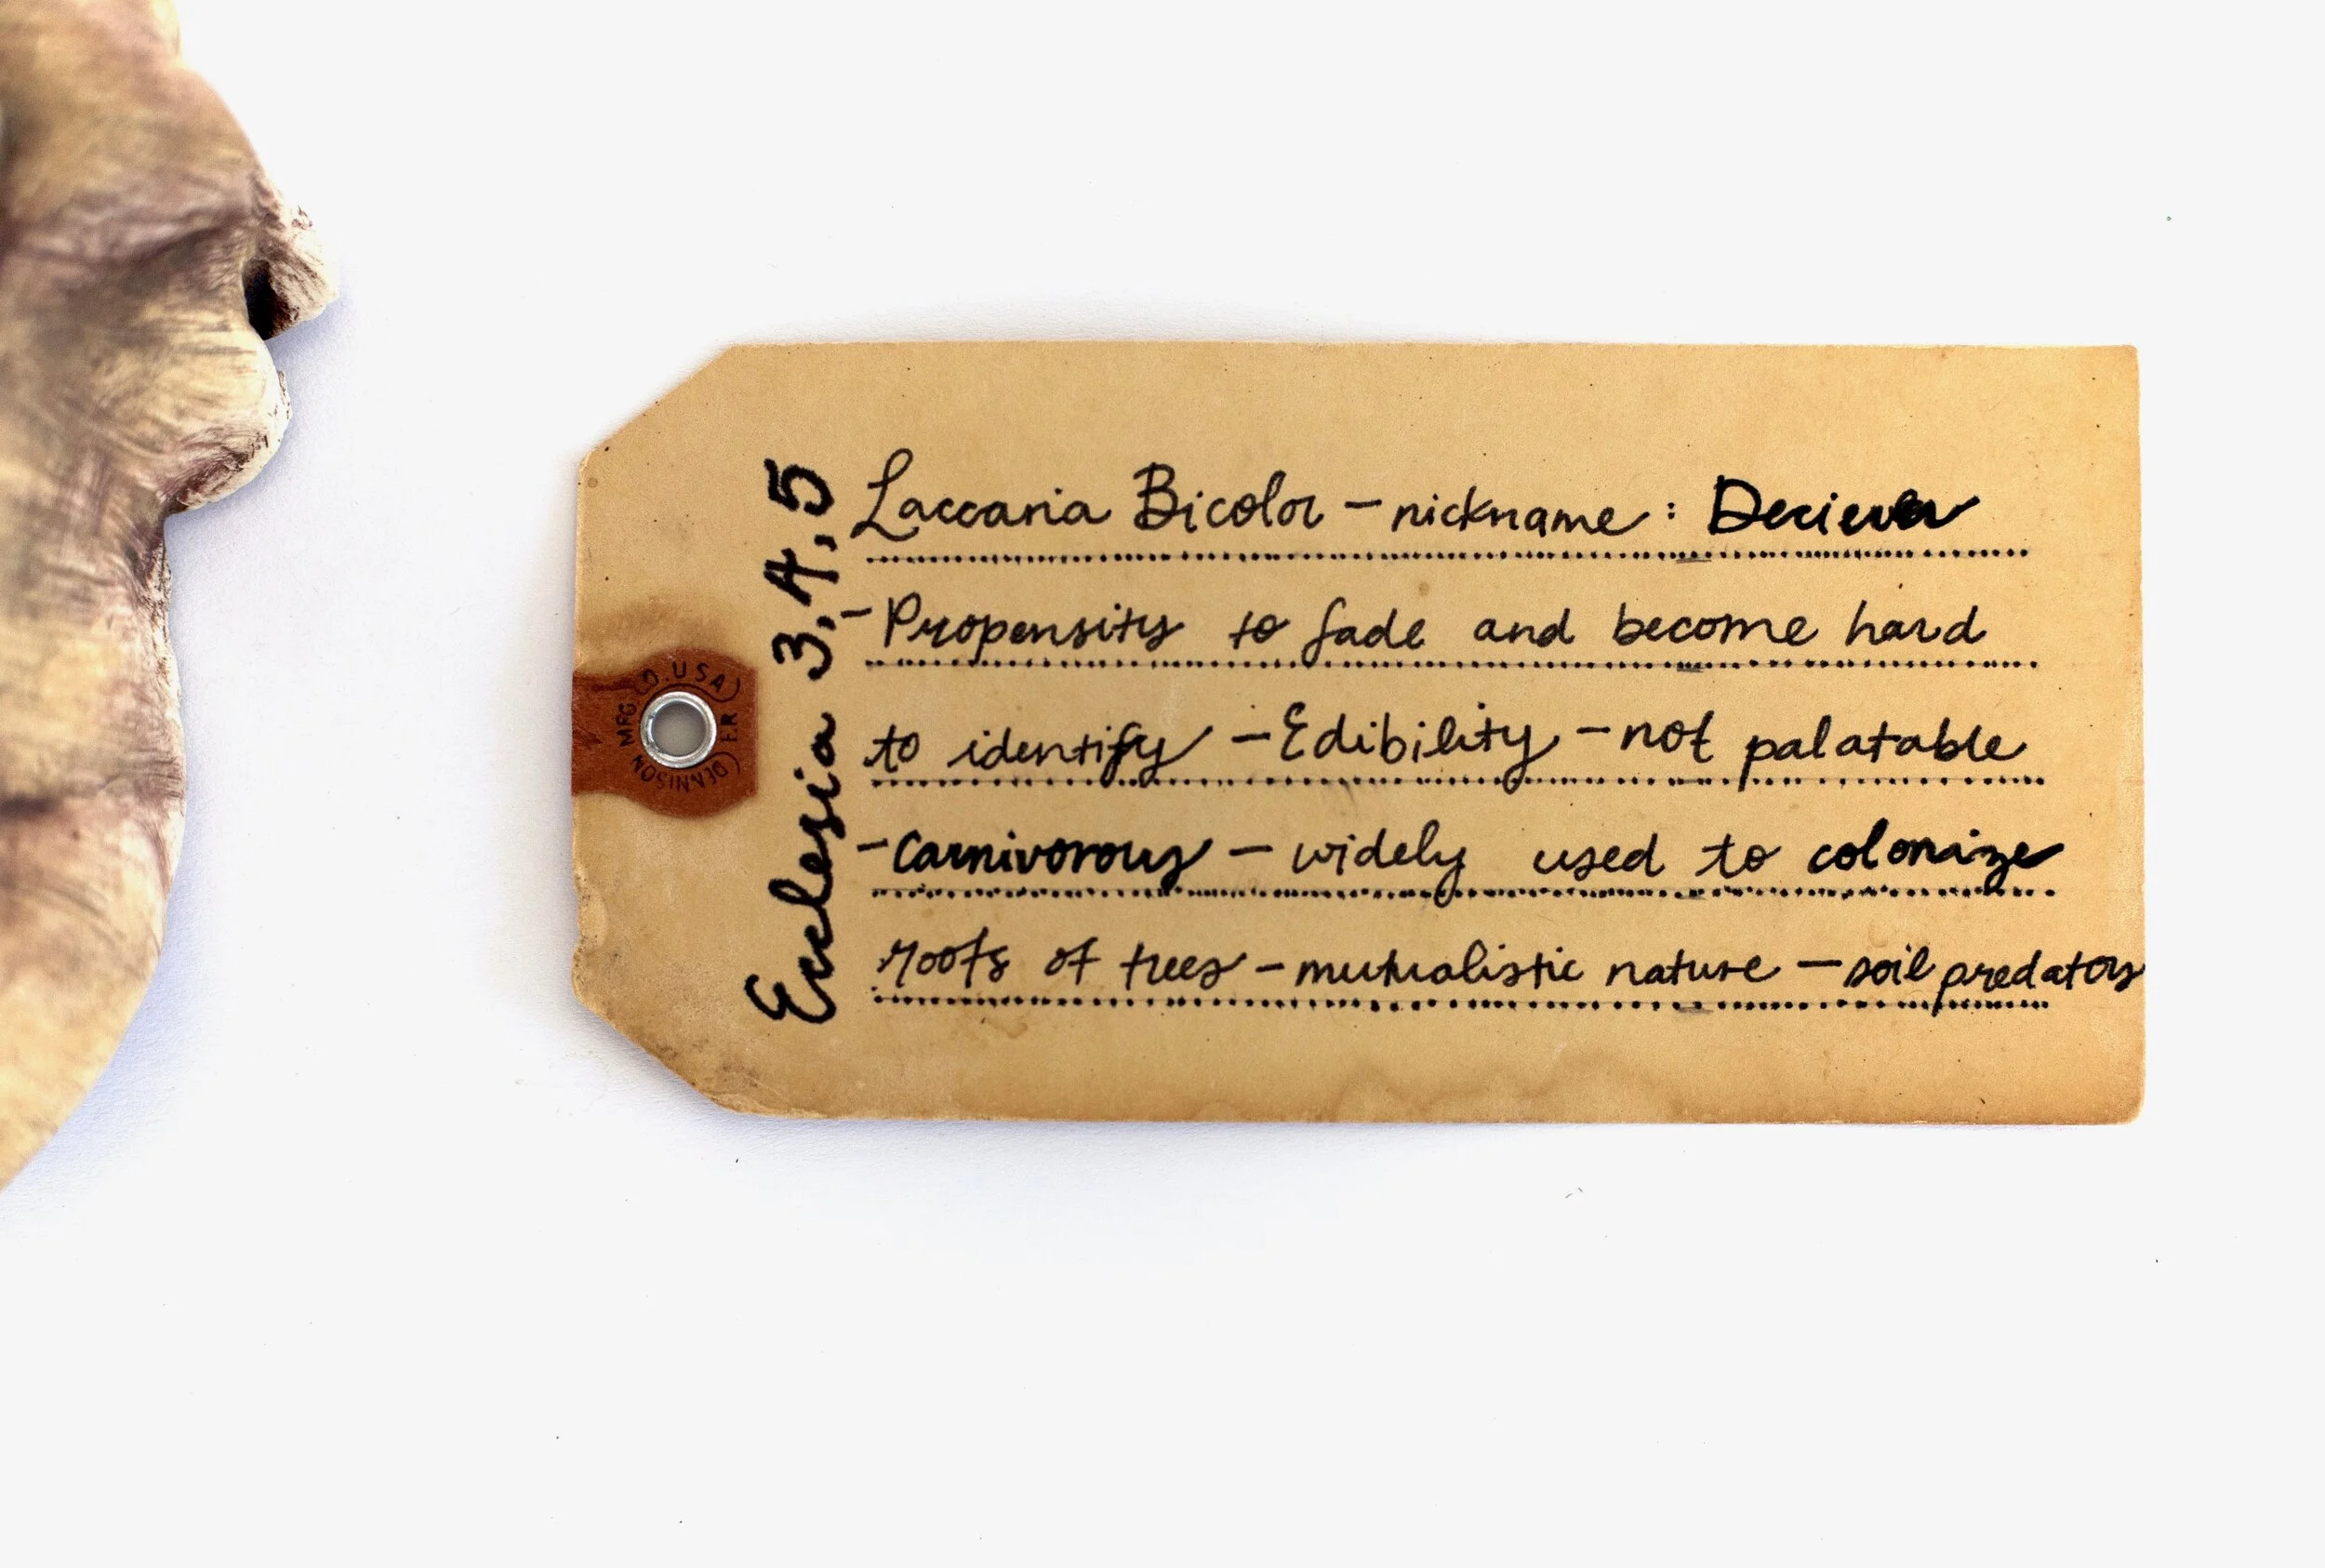 Ecclesia 3,4,5
Laccaria Bicolor – nickname : Deciever
- Propensity to fade and become hard
to identify – Edibility – not palatable
- Carnivorous – widely used to colonize
roots of trees – mutualistic nature – soil predators
DENNISON MFG. CO. USA FR